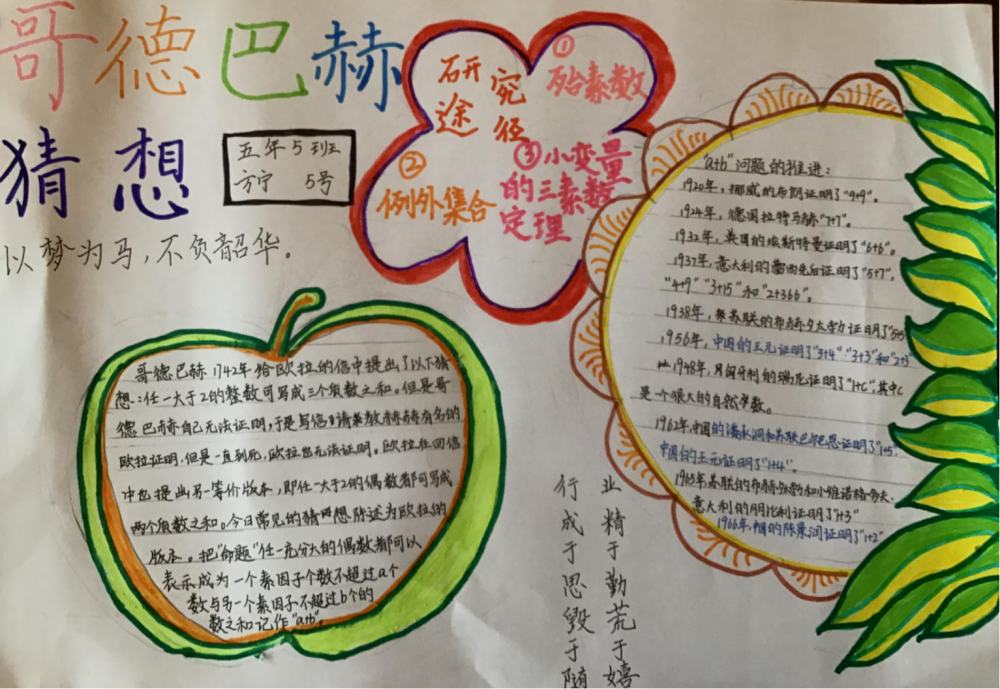 哥德巴赫
猜想
五年5班
方宁 5号
以梦为马，不负韶华。
研究
途径
①
殆素数
②
例外集合
③小变量
的三素数
定理
哥德巴赫1742年给欧拉的信中提出了以下猜
想：任一大于2的整数可写成三个质数之和。但是哥
德巴赫自己无法证明，于是写信请教赫赫有名的
欧拉证明，但是一直到死，欧拉也无法证明。欧拉在回信
中也提出另一等价版本，即任一大于2的偶数都可写成
两个质数之和。今日常见的猜想陈述为欧拉的
版本。把"命题"任一充分大的偶数都可以
表示成为一个素因子个数不超过a个
数与另一个素因子不超过b个的
数之和记作"a+b"。
"a+b"问题的推进：
1920年，挪威的布朗证明了"9+9"。
1924年，德国拉特马赫"7+7"。
1932年，英国的埃斯特曼证明了"6+6"。
1937年，意大利的蕾西先后证明了"5+7"，
"4+9" "3+15"和"2+366"。
1938年，苏联的布赫夕太勃证明了"5+5
1956年，中国的王元证明了"3+4"."3+3"和"2+3
1948年，匈牙利的瑞尼证明了"1+C"，其中C
是一个很大的自然数。
1962年，中国的潘承洞和苏联巴尔巴恩证明了"1+5"，
中国的王元证明了"1+4"。
1965年苏联的布赫和小维诺格多夫，
意大利的朋比利证明了"1+3"
1966年，中国的陈景润证明了"1+2"
业精于勤荒于嬉
行成于思毁于随